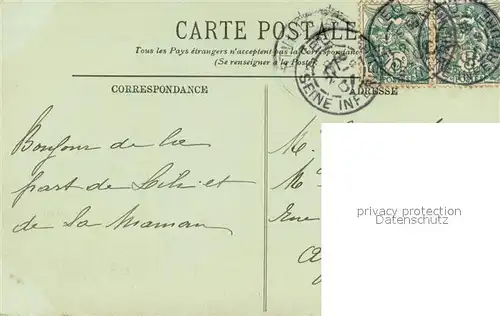 CARTE POSTALE
Tous les Pays étrangers n'acceptent pas la Correspondance
(Se renseigner à la Poste)
SEINE INF
CORRESPONDANCE
ADRESSE
Bonjour de la
part de Lili et
de sa Maman
M.
M
Rue
privacy protection
Datenschutz